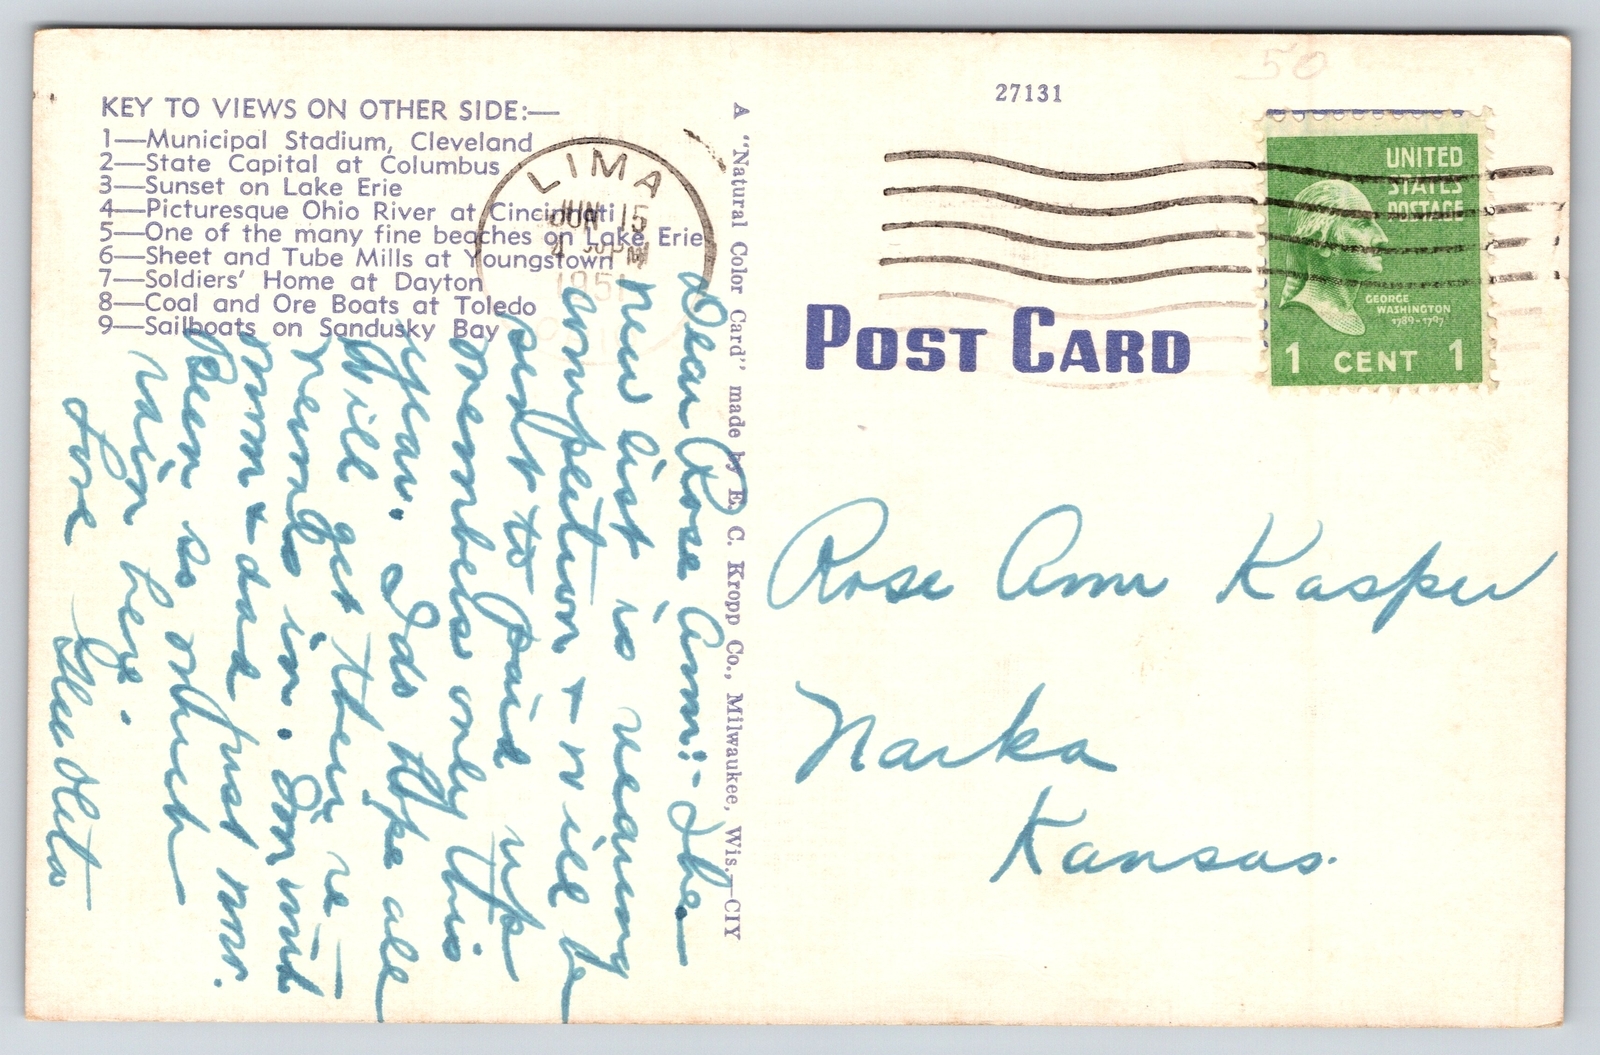 50
27131
KEY TO VIEWS ON OTHER SIDE:—
1—Municipal Stadium, Cleveland
2—State Capital at Columbus
3—Sunset on Lake Erie
4—Picturesque Ohio River at Cincinnati
5—One of the many fine beaches on Lake Erie
6—Sheet and Tube Mills at Youngstown
7—Soldiers' Home at Dayton
8—Coal and Ore Boats at Toledo
9—Sailboats on Sandusky Bay
LIMA
JUN 15
PM
1951
OHIO
A "Natural Color Card" made by E. C. Kropp Co., Milwaukee, Wis.—CIY
POST CARD
UNITED
STATES
POSTAGE
GEORGE
WASHINGTON
1789-1797
1 CENT 1
Dear Rose Ann:- The
new list is nearing
completion & will be
sent to paid up
members only this
year. I do hope all
will get their re-
newals in. I'm with
mom & dad just now.
Been so
rain here.
Love
Rose Ann Kasper
Narka
Kansas.